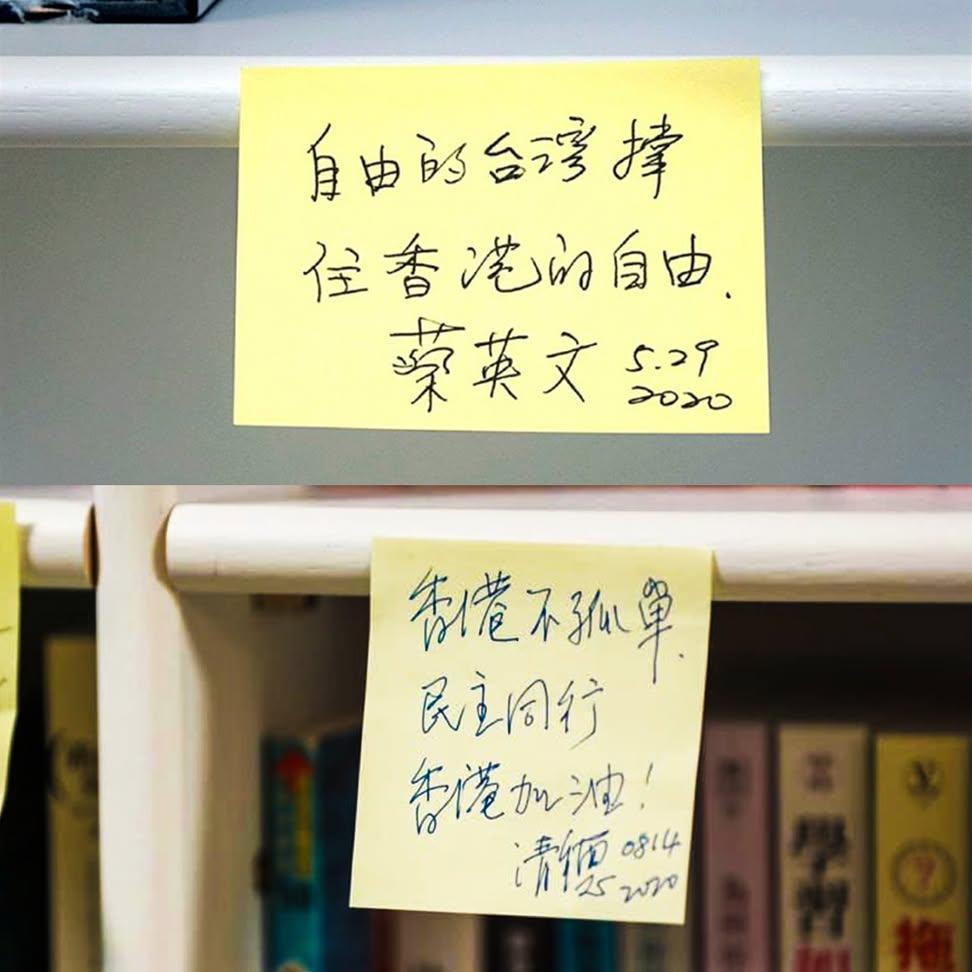 自由的台灣撐
住香港的自由.
蔡英文 5.29
2020
香港不孤單.
民主同行
香港加油！
清德 0814
2020
學習
?
拖